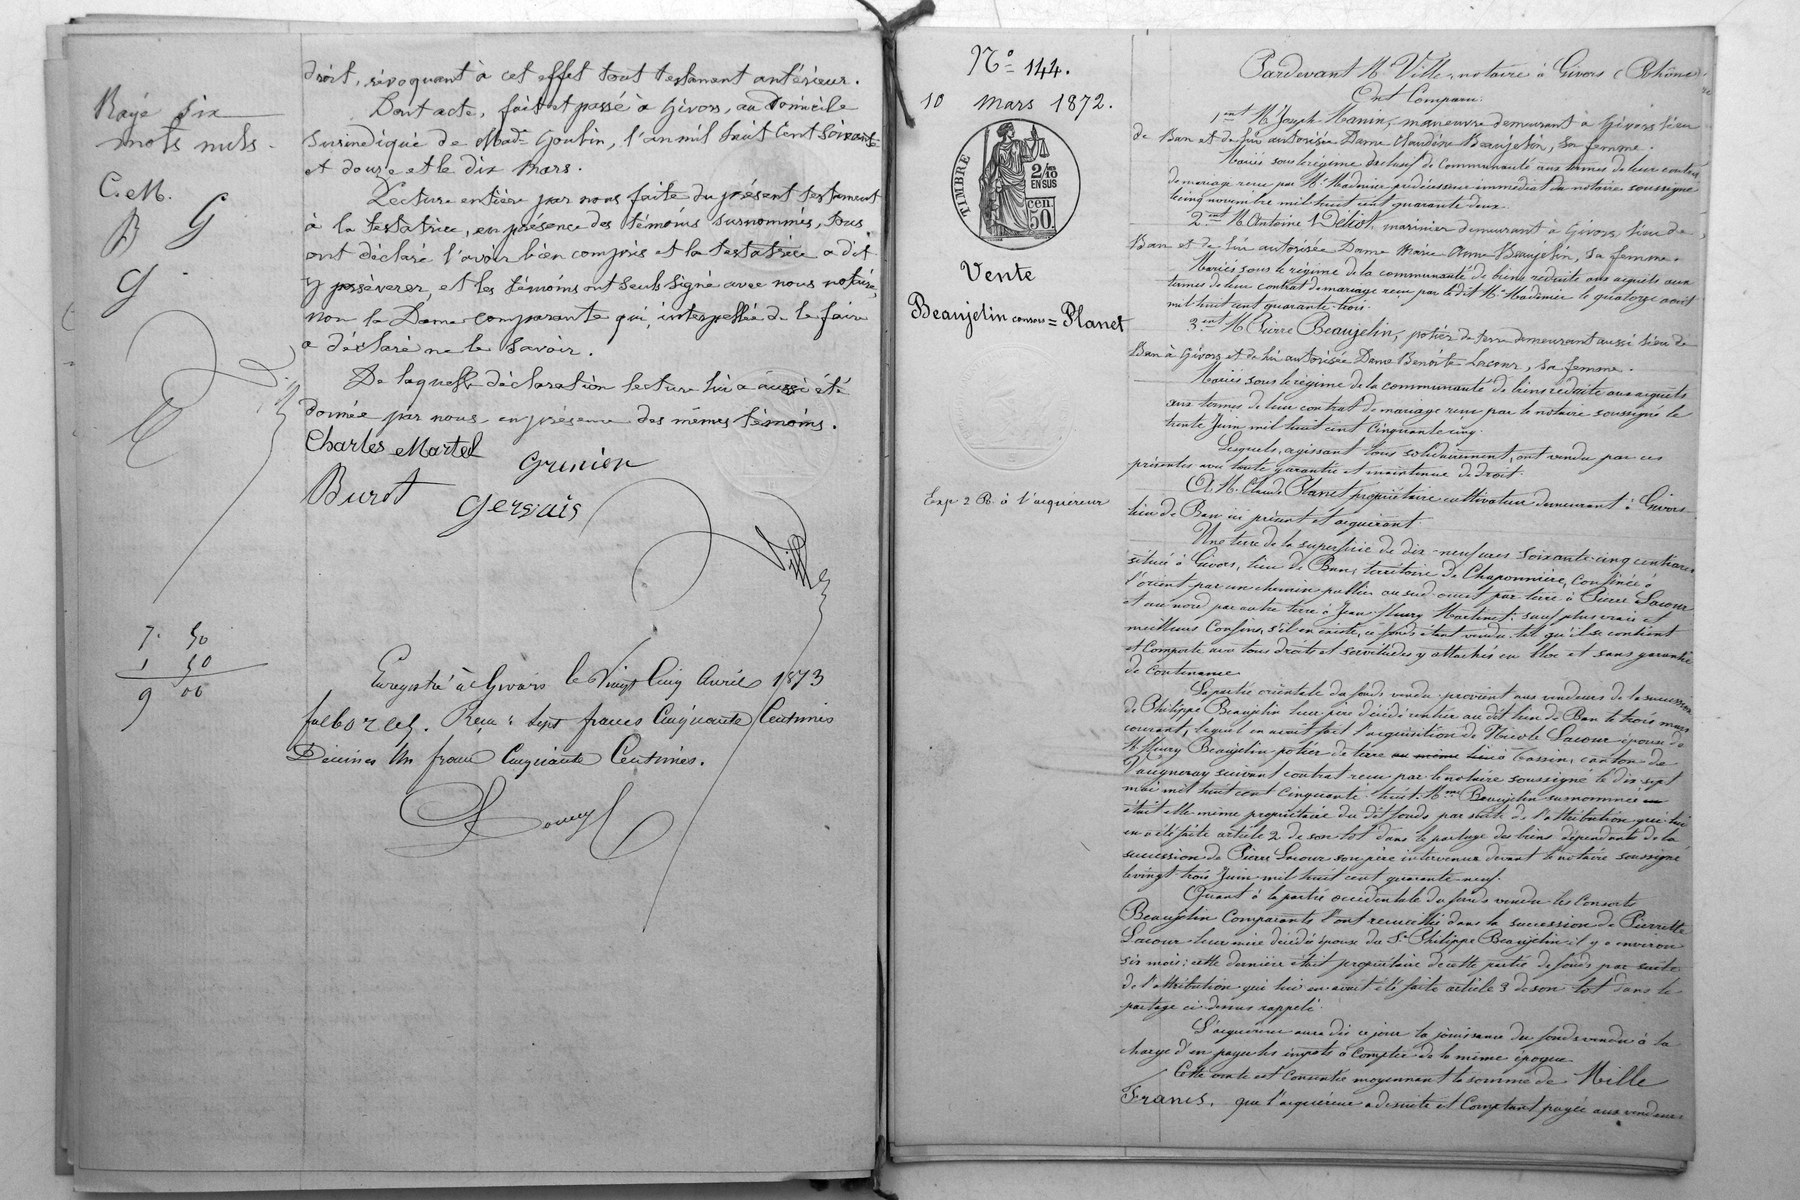 droit, révoquant à cet effet tout testament antérieur.
Dont acte, fait et passé à Givors, au Domicile
susindiqué de Mad. Goutin, l'an mil huit cent soixante
et douze et le dix mars.
Lecture entière par nous faite du présent testament
à la testatrice, en présence des témoins susnommés, tous
ont déclaré l'avoir bien compris et la testatrice a dit
y persévérer, et les témoins ont seuls signé avec nous notaire,
non la Dame comparante qui, interpellée de le faire
a déclaré ne le savoir.
De laquelle déclaration lecture lui a aussi été
donnée par nous en présence des mêmes témoins.
Charles Martel
Grenier
Burot
Gervais
Ville
Rayé six
mots nuls.
C. M.
B G
G
7. 50
1 50
9 00
Enregistré à Givors le Vingt Cinq Avril 1873
Reçu : sept francs Cinquante Centimes
Décimes Un franc Cinquante Centimes.
N° 144.
10 Mars 1872.
TIMBRE
2/10
EN SUS
cen
50.
Vente
Beaujelin consors = Planet
Exp 2 R. à l'acquéreur
Pardevant Me Ville, notaire à Givors (Rhône)
Ont Comparu:
1ent M. Joseph Manin, manœuvre demeurant à Givors lieu
de Ban et de lui autorisée Dame Claudine Beaujelin, sa femme.
Mariés sous le régime exclusif de Communauté aux termes de leur contrat
de mariage reçu par Me Madinier prédécesseur immédiat du notaire soussigné
le cinq novembre mil huit cent quarante deux.
2ent M. Antoine Déliot, marinier demeurant à Givors lieu de
Ban et de lui autorisée Dame Marie Anne Beaujelin, sa femme.
Mariés sous le régime de la communauté de biens réduite aux acquêts aux
termes de leur contrat de mariage reçu par le dit Me Madinier le quatorze août
mil huit cent quarante-trois.
3ent M. Pierre Beaujelin, potier de terre demeurant aussi lieu de
Ban à Givors et de lui autorisée Dame Benoîte Lacour, sa femme.
Mariés sous le régime de la communauté de biens réduite aux acquêts
aux termes de leur contrat de mariage reçu par le notaire soussigné le
trente Juin mil huit cent cinquante cinq.
Lesquels, agissant tous solidairement, ont vendu par ces
présentes avec toute garantie et maintenue de droit.
A M. Claude Planet propriétaire cultivateur demeurant à Givors
lieu de Ban ici présent et acquérant
Une terre de la superficie de dix-neuf ares soixante-cinq centiares
située à Givors, lieu de Ban, territoire de Chaponnière, Confinée à
l'orient par un chemin public au sud-ouest par terre à Pierre Lacour
et au nord par autre terre à Jean-Fleury Martinet: sauf plus vrais et
meilleurs Confins, s'il en existe, ce fonds étant vendu tel qu'il se contient
et Comporte avec tous droits et servitudes y attachés en bloc et sans garantie
de contenance
La partie orientale du fonds vendu provient aux vendeurs de la succession
de Philippe Beaujelin leur père décédé rentier au dit lieu de Ban le trois mars
courant, lequel en avait fait l'acquisition de Nicole Lacour épouse de
M. Fleury Beaujelin potier de terre au même lieu à Tassin, canton de
Vaugneray suivant contrat reçu par le notaire soussigné le dix sept
mai mil huit cent cinquante huit. Mme Beaujelin susnommée
était elle-même propriétaire du dit fonds par suite de l'attribution qui lui
en a été faite article 2 de son lot dans le partage des biens dépendants de la
succession de Pierre Lacour son père intervenu devant le notaire soussigné
le vingt trois Juin mil huit cent quarante-neuf.
Quant à la partie occidentale du fonds vendu les Consorts
Beaujelin Comparants l'ont recueillie dans la succession de Pierrette
Lacour leur mère décédée épouse du Sr Philippe Beaujelin il y a environ
six mois: cette dernière était propriétaire de cette partie de fonds par suite
de l'attribution qui lui en avait été faite article 3 de son lot dans le
partage ci-dessus rappelé.
L'acquéreur aura dès ce jour la jouissance du fonds vendu à la
charge d'en payer les impôts à Compter de la même époque
Cette vente est Consentie moyennant la somme de Mille
Francs. que l'acquéreur a de suite et Comptant payée aux vendeurs